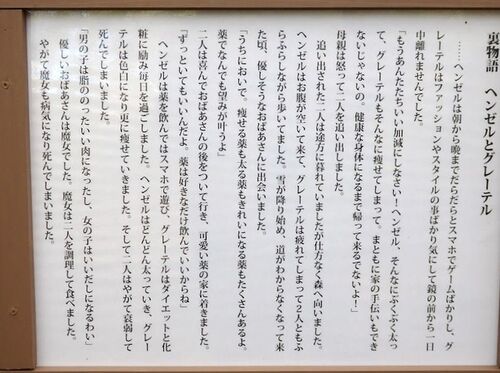 裏物語　ヘンゼルとグレーテル
……ヘンゼルは朝から晩までだらだらとスマホでゲームばかりし、グ
レーテルはファッションやスタイルの事ばかり気にして鏡の前から一日
中離れませんでした。
「もうあんたたちいい加減にしなさい！ヘンゼル、そんなにぶくぶく太っ
て、グレーテルもそんなに痩せてしまって。まともに家の手伝いもでき
ないじゃないの。健康な身体になるまで帰って来るでないよ！」
母親は怒って二人を追い出しました。
追い出された二人は途方に暮れていましたが仕方なく森へ向いました。
ヘンゼルはお腹が空いて来て、グレーテルは疲れてしまって２人ともふ
らふらしながら歩いてました。雪が降り始め、道がわからなくなって来
た頃、優しそうなおばあさんに出会いました。
「うちにおいで。痩せる薬も太る薬もきれいになる薬もたくさんあるよ。
薬でなんでも望みが叶うよ」
二人は喜んでおばあさんの後をついて行き、可愛い薬の家に着きました。
「ずっといてもいいんだよ。薬は好きなだけ飲んでいいからね」
ヘンゼルは薬を飲んではスマホで遊び、グレーテルはダイエットと化
粧に励み毎日を過ごしました。ヘンゼルはどんどん太っていき、グレー
テルは色白になり更に痩せていきました。そして二人はやがて衰弱して
死んでしまいました。
「男の子は脂ののったいい肉になったし、女の子はいいだしになるわい」
優しいおばあさんは魔女でした。魔女は二人を調理して食べました。
やがて魔女も病気になり死んでしまいました。